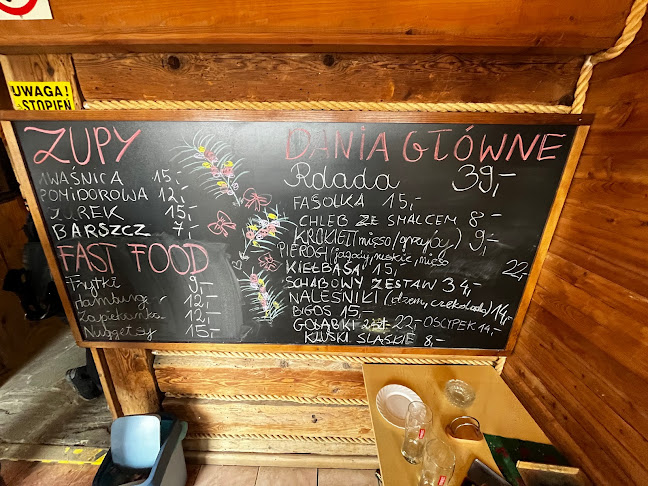 UWAGA!
STOPIEŃ
ZUPY
KWAŚNICA 15,-
POMIDOROWA 12,-
ŻUREK 15,-
BARSZCZ 7,-
FAST FOOD
Frytki 9,-
Hamburger 12,-
Zapiekanka 12,-
Nuggetsy 15,-
DANIA GŁÓWNE
Rolada 39,-
FASOLKA 15,-
CHLEB ZE SMALCEM 8-
KROKIET (mięso/grzyby) 9,-
PIEROGI (jagody, ruskie, mięso 22,-
KIEŁBASA 15,-
SCHABOWY ZESTAW 34,-
NALEŚNIKI (dżem, czekolada) 14,-
BIGOS 15,-
GOŁĄBKI 22,- OSCYPEK 14,-
KLUSKI ŚLĄSKIE 8,-